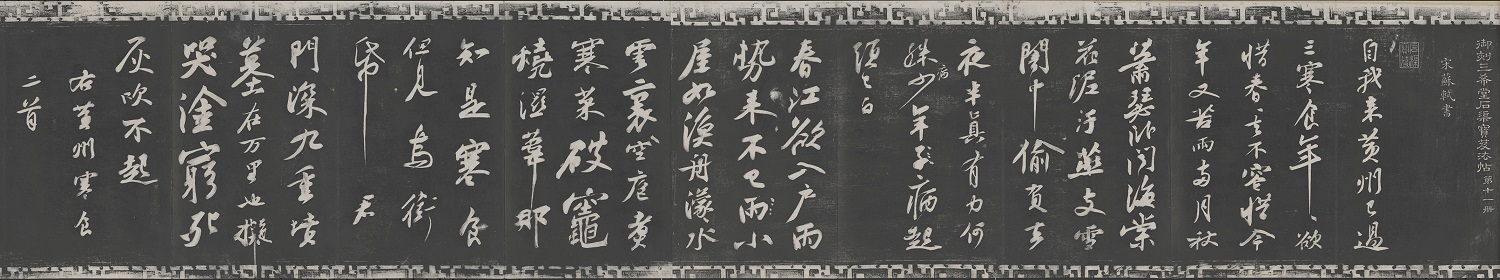 御刻三希堂石渠寶笈法帖 第十一冊
宋蘇軾書
自我来黄州已過
三寒食年〻欲
惜春〻去不容惜今
年又苦雨兩月秋
蕭瑟卧聞海棠
花泥汙燕支雪
闇中偷負去
夜半真有力何
殊少年子病起
須已白
春江欲入户雨
勢来不已雨小
屋如漁舟濛〻水
雲裏空庖煮
寒菜破竈
燒濕葦那
知是寒食
但見烏銜
帋 君
門深九重墳
墓在万里也擬
哭塗窮死
灰吹不起
右黄州寒食
二首